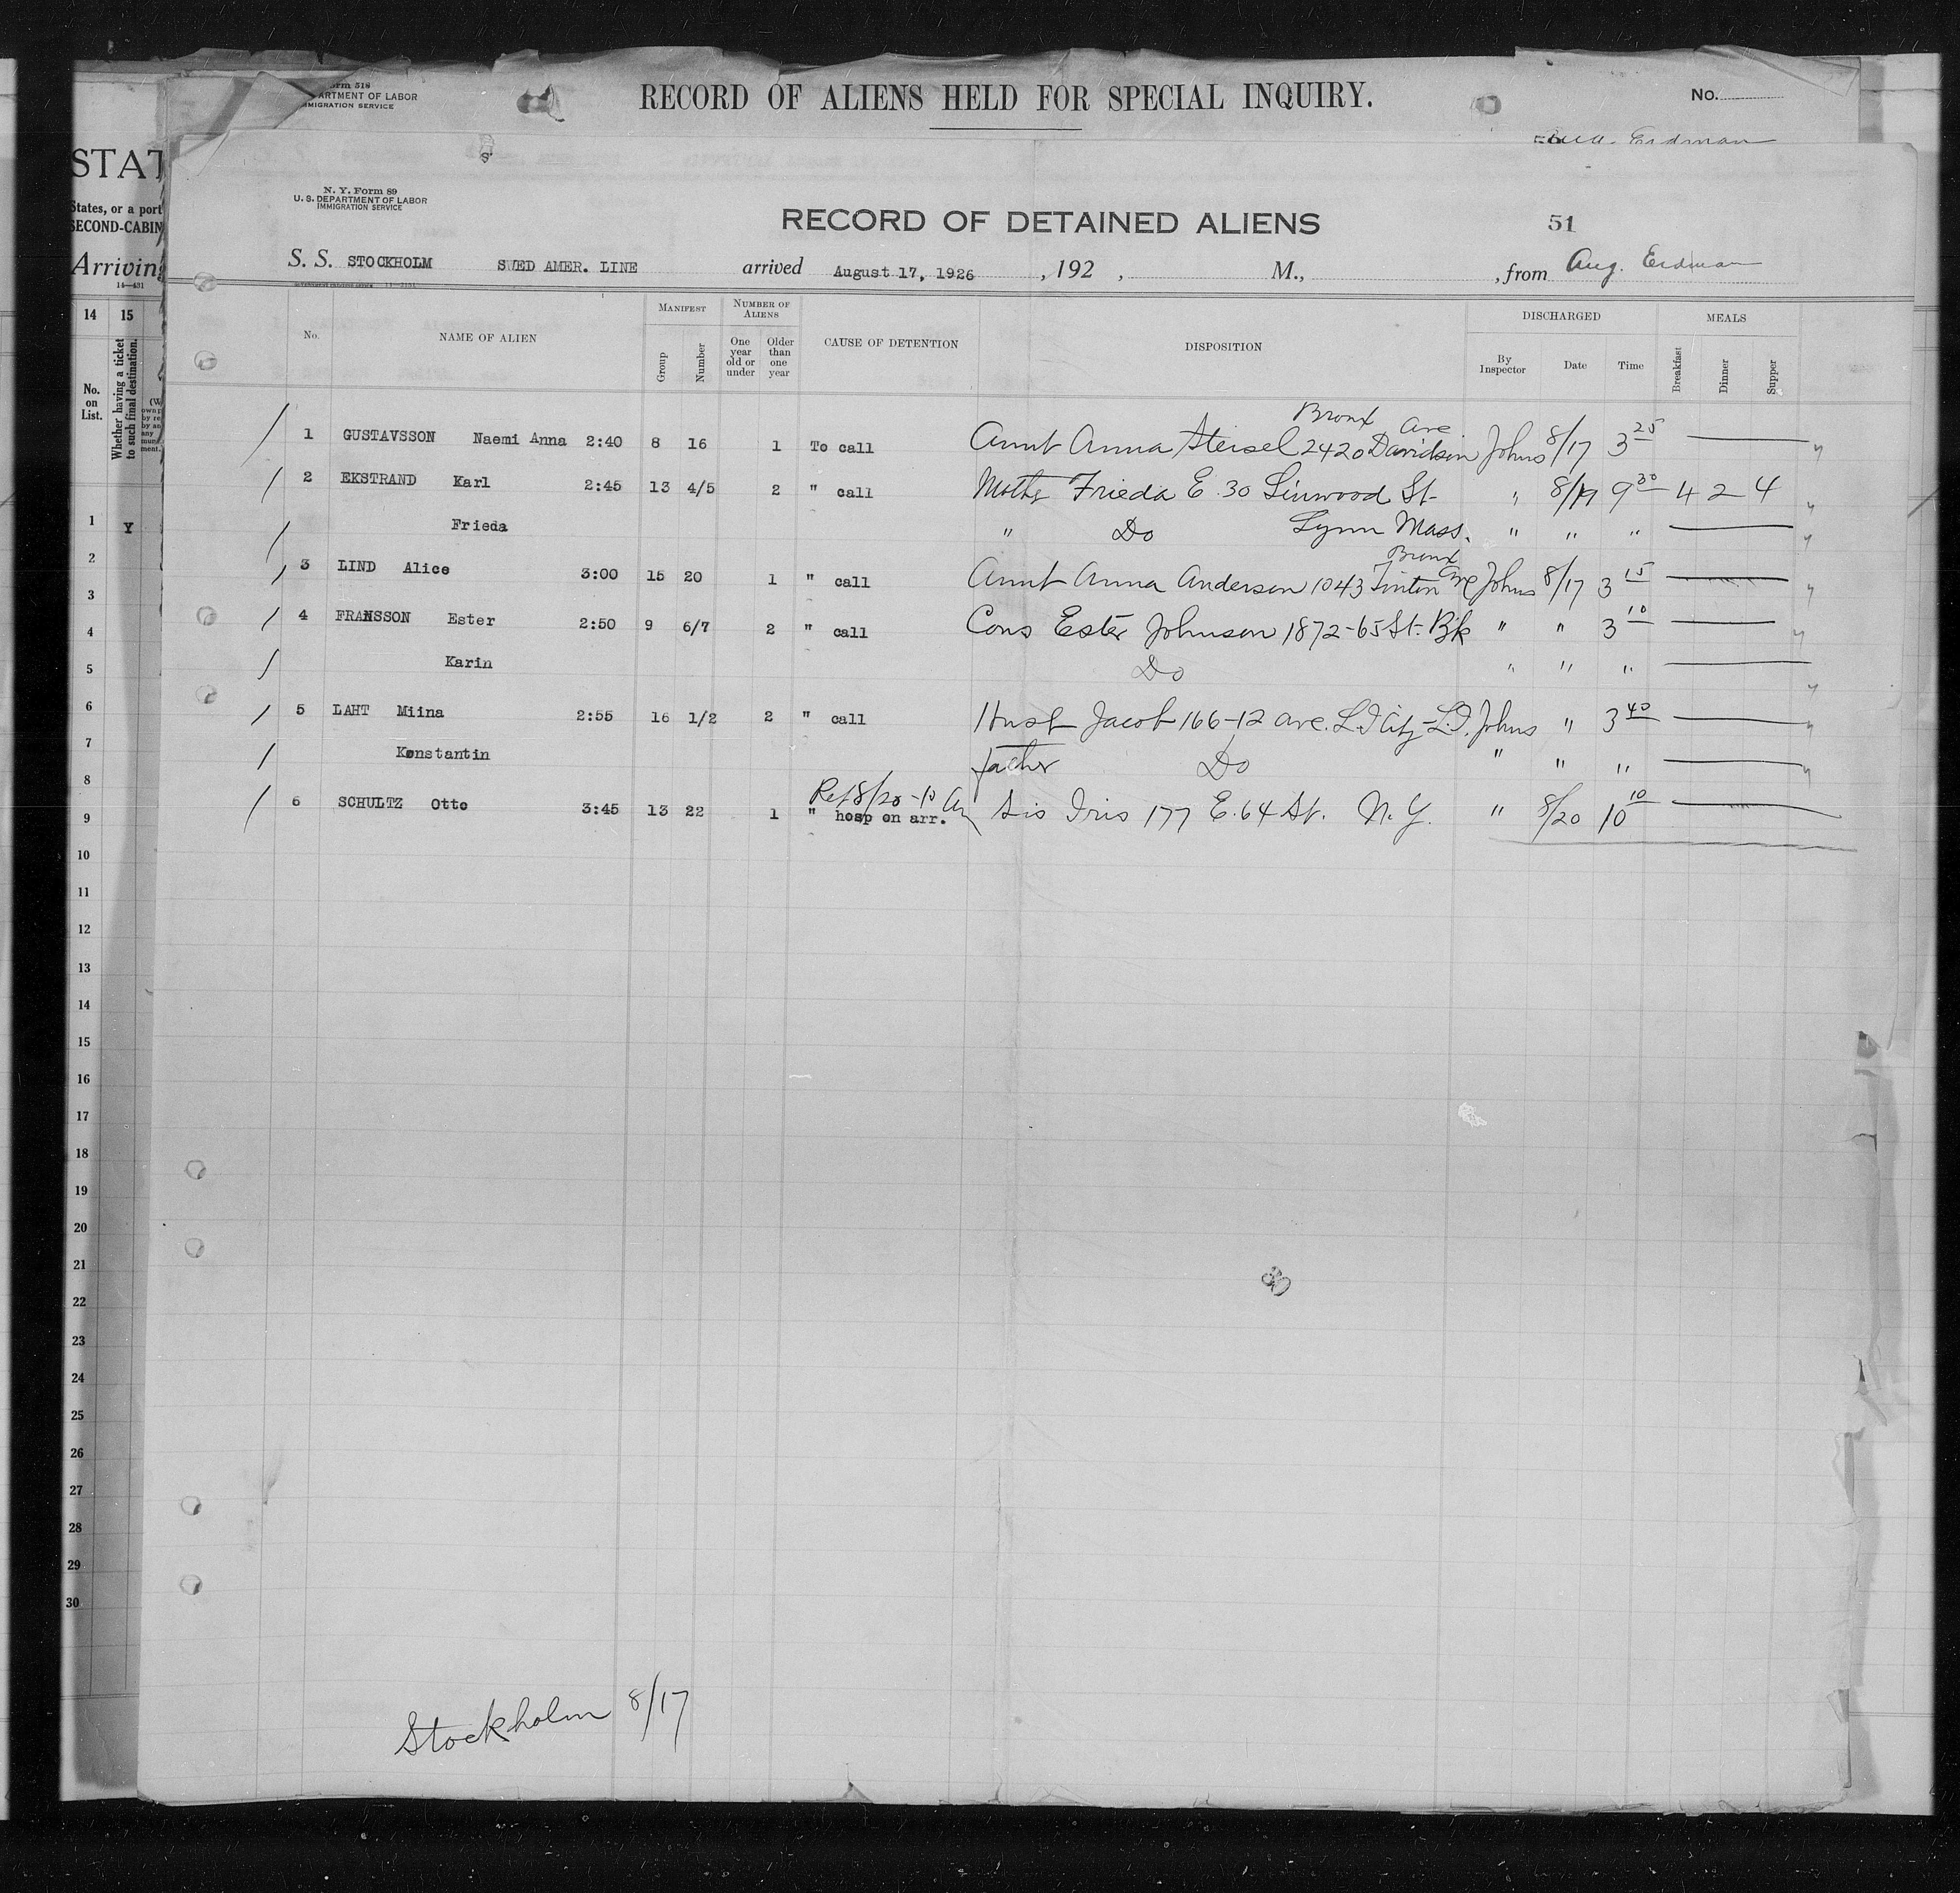 Form 518
DEPARTMENT OF LABOR
IMMIGRATION SERVICE
RECORD OF ALIENS HELD FOR SPECIAL INQUIRY.
No.
Aug. Erdman
STAT
States, or a port
SECOND-CABIN
Arriving
14—431
14 15
No. on List.
Whether having a ticket to such final destination.
N. Y. Form 89
U. S. DEPARTMENT OF LABOR
IMMIGRATION SERVICE
RECORD OF DETAINED ALIENS
51
S. S. STOCKHOLM SWED AMER. LINE arrived August 17, 1926 , 192 , M., , from Aug. Erdman
No. NAME OF ALIEN MANIFEST Group Number NUMBER OF ALIENS One year old or under Older than one year CAUSE OF DETENTION DISPOSITION DISCHARGED By Inspector Date Time MEALS Breakfast Dinner Supper
Bronx Ave
1 GUSTAVSSON Naemi Anna 2:40 8 16 1 To call Aunt Anna Steisel 2420 Davidson Johns 8/17 3 25
2 EKSTRAND Karl 2:45 13 4/5 2 " call Mother Frieda E 30 Linwood St. " 8/19 9 30 4 2 4
Frieda " Do Lynn Mass. " " "
Bronx
3 LIND Alice 3:00 15 20 1 " call Aunt Anna Anderson 1043 Tinton Ave Johns 8/17 3 15
4 FRANSSON Ester 2:50 9 6/7 2 " call Cons Ester Johnson 1872-65 St. Bk " " 3 10
Karin Do " " "
5 LAHT Miina 2:55 16 1/2 2 " call Husb Jacob 166-12 ave. L I City L.I. Johns " 3 40
Konstantin father Do " " "
Rel 8/20 - 10 Am
6 SCHULTZ Otto 3:45 13 22 1 " hosp on arr. Sis Iris 177 E. 64 St. N. Y. " 8/20 10 10
1 Y
2
3
4
5
6
7
8
9
10
11
12
13
14
15
16
17
18
19
20
21
22
23
24
25
26
27
28
29
30
Stockholm 8/17